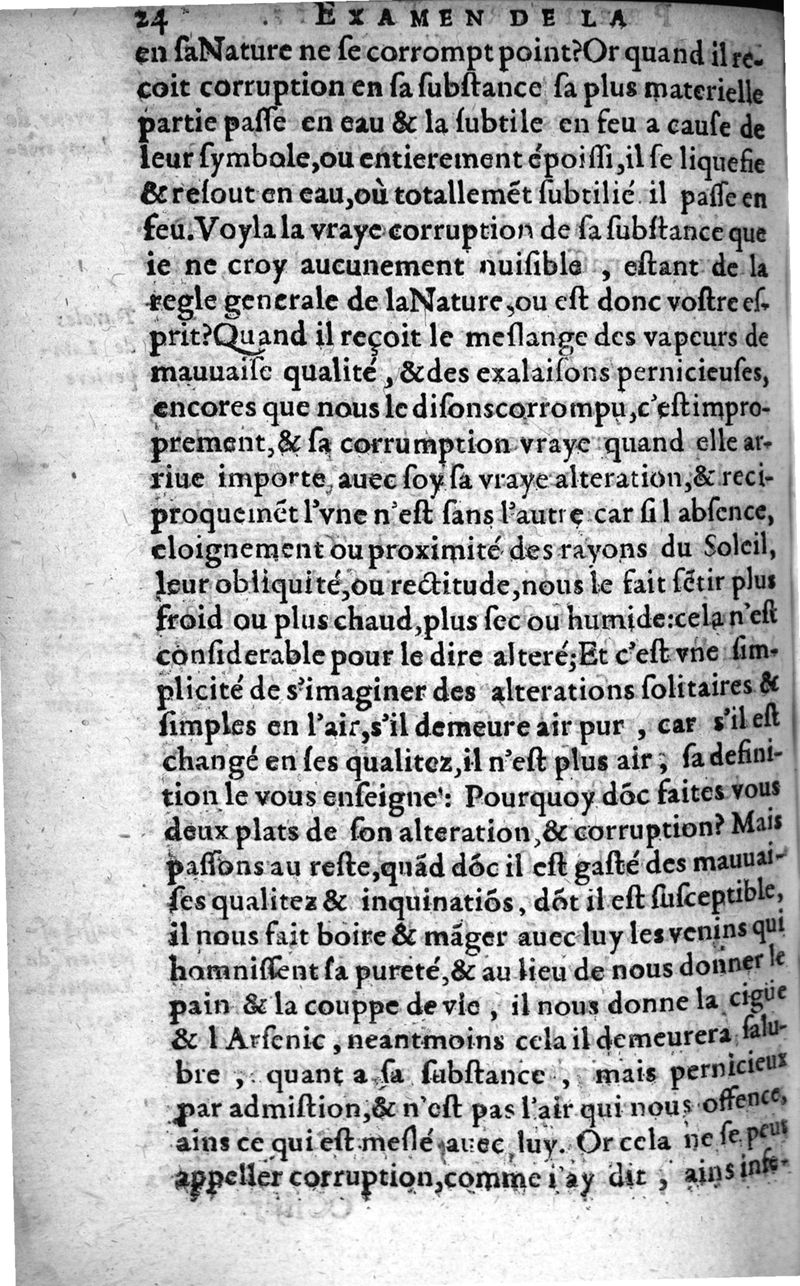 24 EXAMEN DE LA
en ſaNature ne ſe corrompt point?Or quand il re-
çoit corruption en ſa ſubſtance ſa plus materielle
partie paſſe en eau & la ſubtile en feu a cauſe de
leur ſymbole,ou entierement époiſſi,il ſe liquefie
& reſout en eau,où totallemẽt ſubtilié il paſſe en
feu.Voyla la vraye corruption de ſa ſubſtance que
ie ne croy aucunement nuiſible , eſtant de la
regle generale de laNature,ou eſt donc voſtre eſ-
prit?Quand il reçoit le meſlange des vapeurs de
mauuaiſe qualité , &des exalaiſons pernicieuſes,
encores que nous le diſonscorrompu,c'eſtimpro-
prement,& ſa corrumption vraye quand elle ar-
riue importe auec ſoy ſa vraye alteration,& reci-
proquemẽt l'vne n'eſt ſans l'autre car ſi l abſence,
eloignement ou proximité des rayons du Soleil,
leur obliquité,ou rectitude,nous le fait ſẽtir plus
froid ou plus chaud,plus ſec ou humide:cela n'eſt
conſiderable pour le dire alteré;Et c'eſt vne ſim-
plicité de s'imaginer des alterations ſolitaires &
ſimples en l'air,s'il demeure air pur , car s'il eſt
changé en ſes qualitez,il n'eſt plus air ; ſa defini-
tion le vous enſeigne : Pourquoy dõc faites vous
deux plats de ſon alteration,& corruption? Mais
paſſons au reſte,quãd dõc il eſt gaſté des mauuai-
ſes qualitez & inquinatiõs, dõt il eſt ſuſceptible,
il nous fait boire & mãger auec luy les venins qui
homniſſent ſa pureté,& au lieu de nous donner le
pain & la couppe de vie , il nous donne la cigüe
& l Arſenic , neantmoins cela il demeurera ſalu-
bre , quant a ſa ſubſtance , mais pernicieux
par admiſtion,& n'eſt pas l'air qui nous offence,
ains ce qui eſt meſlé auec luy. Or cela ne ſe peut
appeller corruption,comme i'ay dit , ains infe-